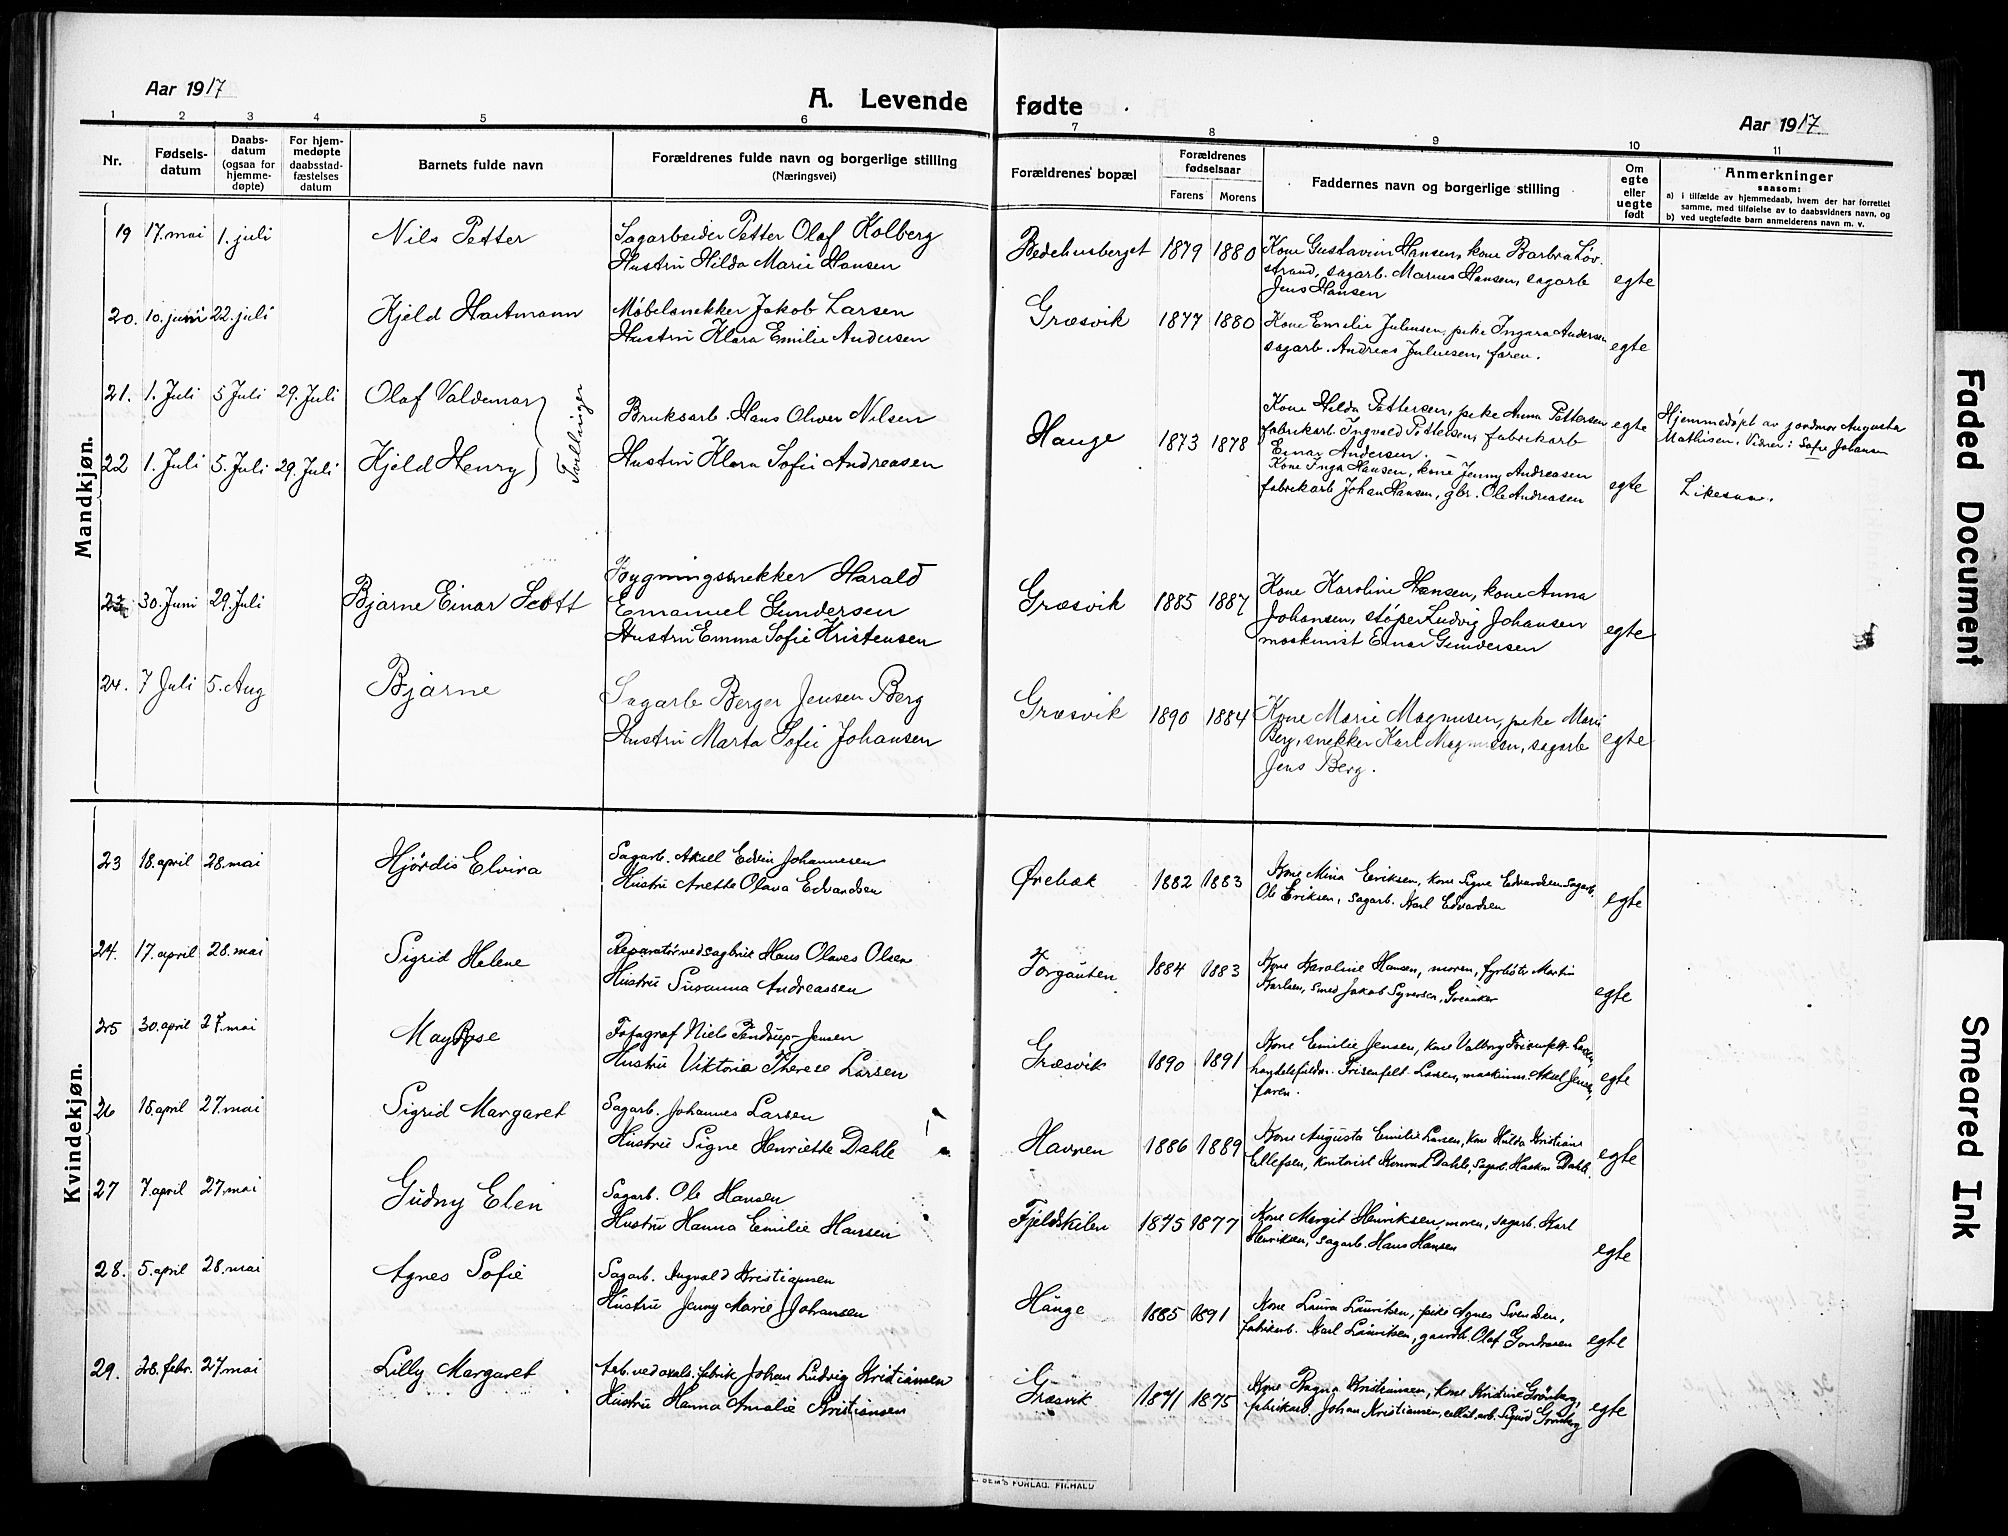 Aar 1917
A. Levende fødte
Aar 1917
1 2 3 4 5 6 7 8 9 10 11
Nr.
Fødsels-
datum
Daabs-
datum
(ogsaa for
hjemme-
døpte)
For hjem-
medøpte
daabsstad-
fæstelses
datum
Barnets fulde navn
Forældrenes fulde navn og borgerlige stilling
(Næringsvei)
Forældrenes' bopæl
Forældrenes
fødselsaar
Farens Morens
Faddernes navn og borgerlige stilling
Om
egte
eller
uegte
født
Anmerkninger
saasom:
a) i tilfælde av hjemmedaab, hvem der har forrettet
samme, med tilføielse av to daabsvidners navn, og
b) ved uegtefødte barn anmelderens navn m. v.
Mandkjøn.
19 17. mai 1. juli Nils Petter
Sagarbeider Petter Olaf Kolberg
Hustru Hilda Marie Hansen
Bedehusberget 1879 1880
Kone Gustavine Hansen, kone Barbra Løv-
strand, sagarb. Marius Hansen, sagarb
Jens Hansen
egte
20. 10. juni 22. juli Kjeld Hartmann
Møbelsnekker Jakob Larsen
Hustru Klara Emilie Andersen
Græsvik 1877 1880
Kone Emilie Juliusen, pike Ingara Andersen
sagarb. Andreas Juliusen, faren.
egte
21. 1. Juli 5 Juli 29. Juli Olaf Valdemar
22 1. Juli 5. Juli 29 Juli Kjeld Henry
Tvillinger
Bruksarb. Hans Oliver Nilsen
Hustru Klara Sofie Andreasen
Hauge 1873 1878
Kone Hilda Pettersen, pike Anna Pettersen
fabrikarb Ingvald Pettersen, fabrikarb
Einar Andersen.
egte
Kone Inga Hansen, kone Jenny Andreasen
fabrikarb Johan Hansen, gbr. Ole Andreasen
egte
Hjemmedøpt av jordmor Augusta
Mathisen. Vidner: Sofie Johansen
Likesaa.
23 30. Juni 29. Juli Bjarne Einar Scott
Bygningssnekker Harald
Emanuel Gundersen
Hustru Emma Sofie Kristensen
Græsvik 1885 1887
Kone Karoline Hansen, kone Anna
Johansen, støper Ludvig Johansen
maskinist Einar Gundersen
egte
24. 7 Juli 5. Aug Bjarne
Sagarb Berger Jensen Berg
Hustru Marta Sofie Johansen
Græsvik 1890 1884
Kone Marie Magnusen, pike Marie
Berg, snekker Karl Magnusen, sagarb
Jens Berg.
egte
Kvindekjøn.
23 18. april 28. mai Hjørdis Elvira
Sagarb. Aksel Edvin Johannesen
Hustru Anette Olava Edvardsen
Ørebæk 1882 1883
Kone Mina Eriksen, kone Signe Edvardsen Sagarb.
Ole Eriksen, Sagarb. Karl Edvardsen
egte
24. 17. april 28. mai Sigrid Helene
Reparatør ved sagbruk Hans Olaves Olsen
Hustru Susanna Andreassen
Torgauten 1884 1883
Kone Karoline Hansen, moren, fyrbøter Martin
Karlsen, smed Jakob Syversen, Greaaker
egte
25 30. april 27. mai May Rose
Fotograf Niels Tendrup-Jensen
Hustru Viktoria Therese Larsen
Græsvik 1890 1891
Kone Emilie Jensen, kone Valborg Frisenfelt-Larsen,
handelsfuldm. Frisenfelt Larsen, maskinm. Aksel Jensen,
faren.
egte
26 15. april 27. mai Sigrid Margaret
Sagarb. Johannes Larsen
Hustru Signe Henriette Dahle
Havnen 1886 1889
Kone Augusta Emilie Larsen, kone Hulda Kristiane
Ellefsen, kontorist Konrad Dahle, sagarb. Haakon Dahle.
egte
27 7. april 27. mai Gudny Elen
Sagarb. Ole Hansen
Hustru Hanna Emilie Hansen
Fjeldskilen 1875 1877
Kone Margit Henriksen, moren, sagarb. Karl
Henriksen, sagarb. Hans Hansen
egte
28. 5. april 28. mai Agnes Sofie
Sagarb. Angvald Kristiansen
Hustru Jenny Marie Johansen
Hauge 1885 1891
Kone Laura Lauritsen, pike Agnes Svendsen,
fabrikarb. Karl Lauritsen, gaardb. Olaf Gundersen
egte
29. 28. febr. 27. mai Lilly Margaret
Arb. ved oxals. fabrik Johan Ludvig Kristiansen
Hustru Hanna Amalie Kristiansen
Græsvik 1871 1875
Kone Ragna Kristiansen, kone Kristine Grønberg,
fabrikarb. Johan Kristiansen, cellul. arb. Sigurd Grønberg
egte
SEM'S FORLAG. FR.HALD
Faded Document
Smeared Ink